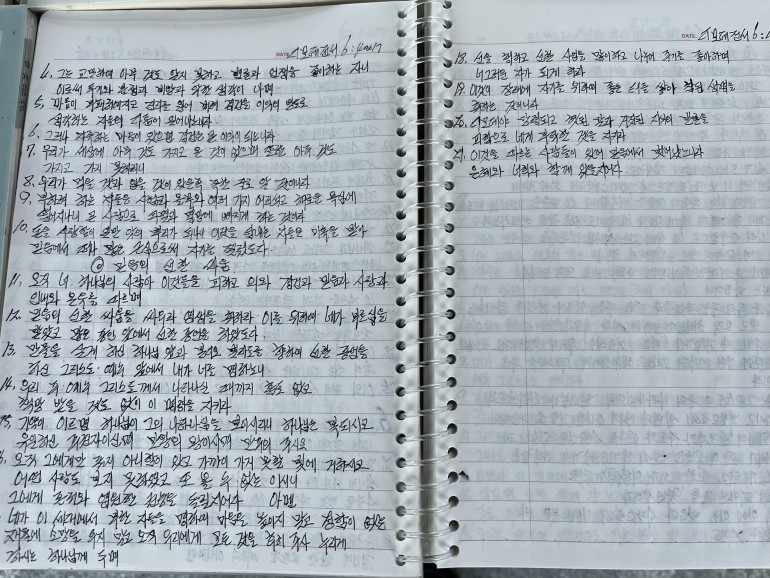 DATE 디모데전서 6:4~17
4. 그는 교만하여 아무 것도 알지 못하고 변론과 언쟁을 좋아하는 자니
이로써 투기와 분쟁과 비방과 악한 생각이 나며
5. 마음이 부패하여지고 진리를 잃어 버려 경건을 이익의 방도로
생각하는 자들의 다툼이 일어나느니라
6. 그러나 자족하는 마음이 있으면 경건은 큰 이익이 되느니라
7. 우리가 세상에 아무 것도 가지고 온 것이 없으매 또한 아무 것도
가지고 가지 못하리니
8. 우리가 먹을 것과 입을 것이 있은즉 족한 줄로 알 것이니라
9. 부하려 하는 자들은 시험과 올무와 여러 가지 어리석고 해로운 욕심에
떨어지나니 곧 사람으로 파멸과 멸망에 빠지게 하는 것이라
10. 돈을 사랑함이 일만 악의 뿌리가 되나니 이것을 탐내는 자들은 미혹을 받아
믿음에서 떠나 많은 근심으로써 자기를 찔렀도다
믿음의 선한 싸움
11. 오직 너 하나님의 사람아 이것들을 피하고 의와 경건과 믿음과 사랑과
인내와 온유를 따르며
12. 믿음의 선한 싸움을 싸우라 영생을 취하라 이를 위하여 네가 부르심을
받았고 많은 증인 앞에서 선한 증언을 하였도다
13. 만물을 살게 하신 하나님 앞과 본디오 빌라도를 향하여 선한 증언을
하신 그리스도 예수 앞에서 내가 너를 명하노니
14. 우리 주 예수 그리스도께서 나타나실 때까지 흠도 없고
책망 받을 것도 없이 이 명령을 지키라
15. 기약이 이르면 하나님이 그의 나타나심을 보이시리니 하나님은 복되시고
유일하신 주권자이시며 만왕의 왕이시며 만주의 주시요
오직 그에게만 죽지 아니함이 있고 가까이 가지 못할 빛에 거하시고
어떤 사람도 보지 못하였고 또 볼 수 없는 이시니
그에게 존귀와 영원한 권능을 돌릴지어다 아멘
네가 이 세대에서 부한 자들을 명하여 마음을 높이지 말고 정함이 없는
재물에 소망을 두지 말고 오직 우리에게 모든 것을 후히 주사 누리게
하시는 하나님께 두며
DATE 디모데전서 6:
18. 선을 행하고 선한 사업을 많이하고 나누어 주기를 좋아하며
너그러운 자가 되게 하라
19. 이것이 장래에 자기를 위하여 좋은 터를 쌓아 참된 생명을
취하는 것이니라
20. 디모데야 망령되고 헛된 말과 거짓된 지식의 반론을
피함으로 네게 부탁한 것을 지키라
21. 이것을 따르는 사람들이 있어 믿음에서 벗어났느니라
은혜가 너희와 함께 있을지어다